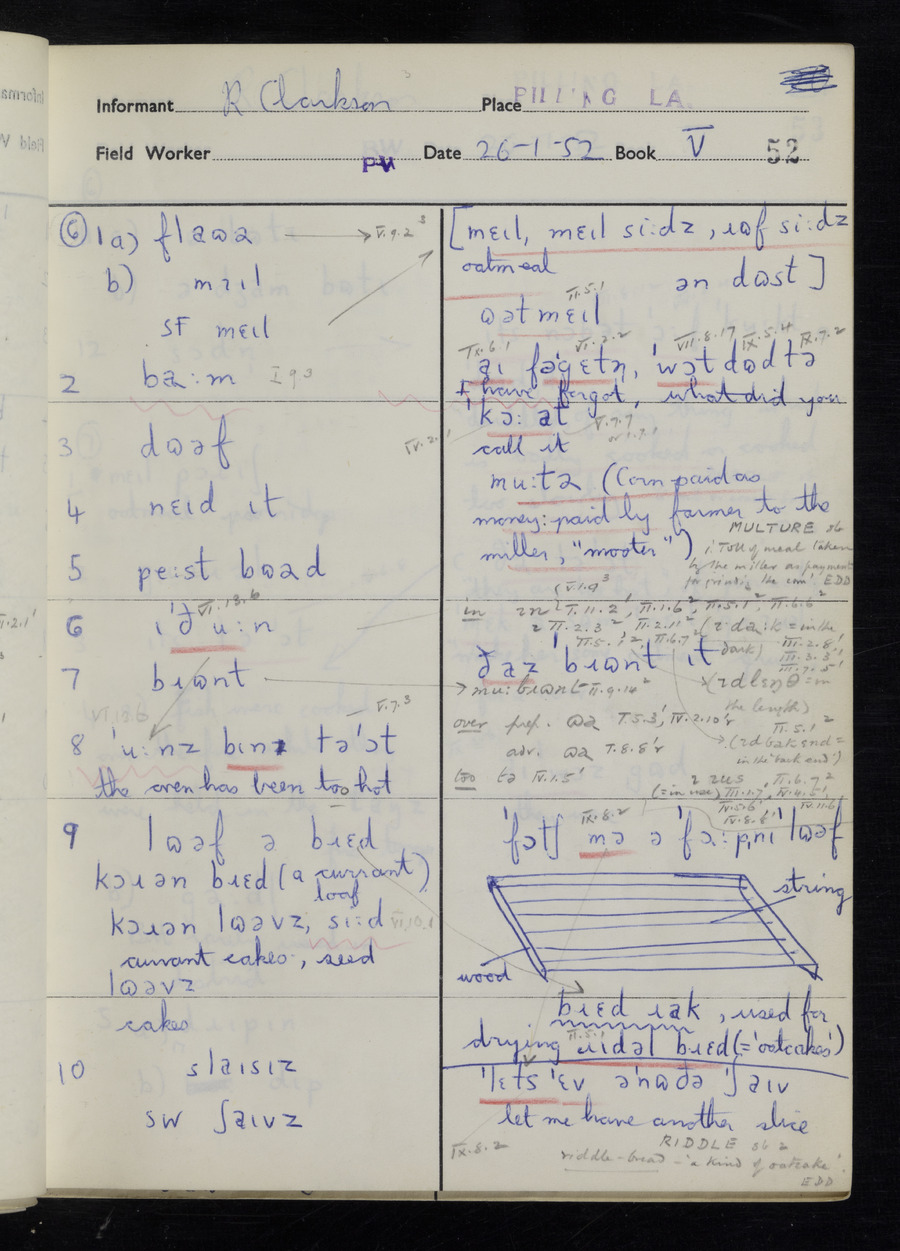 Informant R Clarkson Place PILLING LA.
Field Worker PW Date 26-11-52 Book V 52
⑥ 1a) flaɷə → V.9.2³
b) mɪəl
SF mɛɩl
2 ba:m I 9 3
3 dɷəf
4 nɛɩd ɩt
5 pe:st bɷəd
6 ɩ'ðu:n VI.13.6
7 bɹɷnt
V.7.3
8 'u:nz bɩnz tə'ɔt
the oven has been too hot
9 lɷəf ə bɹɛd
kɔɹən bɹɛd (a currant loaf)
kɔɹən lɷəvz, si:d VI.10.1
currant cakes, seed
lɷəvz
cakes
10 slaɩsɩz
SW ʃaɩvz
[mɛɩl, mɛɩl si:dz, ɹɷf si:dz
oatmeal ən dɷst]
II.5.1
ɷətmɛɩl
IX.6.1 VI.2.2 VII.8.17 IX.5.4 IX.7.2
aɩ fəgɛtn, 'wɔt dɷd tə
I have forgot, what did you
'kɔ: ət V.7.7
IV.2.1 or V.7.1
call it
mu:tə (Corn paid as
money: paid by farmer to the
miller, "mooter")
MULTURE sb
1. Toll of meal taken
by the miller as payment
for grinding the corn'. EDD
(V.1.9³
in
(ɪ da:k = in the
dark)
ðaz 'bɹɷnt ɩt
mu:bɹɷnt II.9.14²
(ɪd lɛnθ = in
the length)
over prep. ɷə I.5.3', IV.2.10'r
adv. ɷə I.8.8'r
II.5.1²
(ɪd bak ɛnd =
in the back end')
too tə IV.1.5'
(= in use)
IX.8.2
'fɔtʃ mə ə 'fɔ:pni lɷəf
string
wood
bɹɛd ɹak, used for
drying ɹɩdəl bɹɛd (= 'oatcakes')
II.5.1
'lɛts 'ɛv ə'nɷðə 'ʃaɩv
let me have another slice
IX.8.2
RIDDLE sb 2
riddle-bread - 'a kind of oatcake'.
EDD